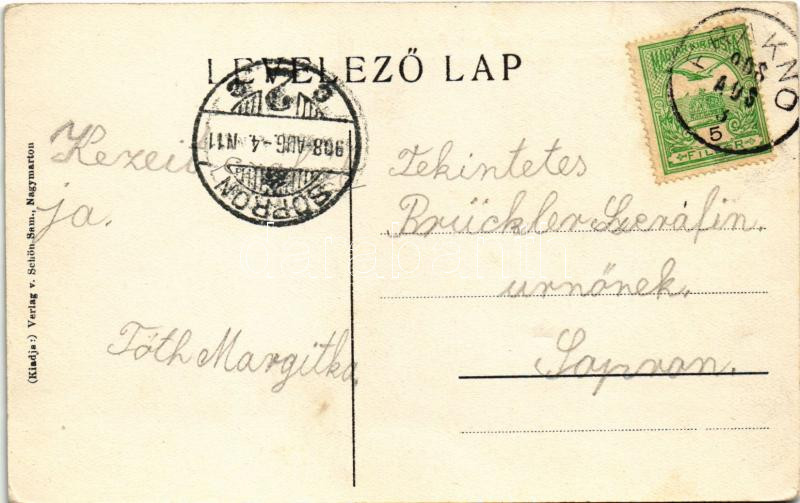 LEVELEZŐ LAP
MAGYAR KIR. POSTA
FILLÉR
908
AUG
5
SOPRON
908 AUG -4 N11
Kezeit
ja.
Tóth Margitka.
Tekintetes
Brückler Szeráfin
urnőnek.
Sopron.
(Kiadja:) Verlag v. Schön Sam., Nagymarton